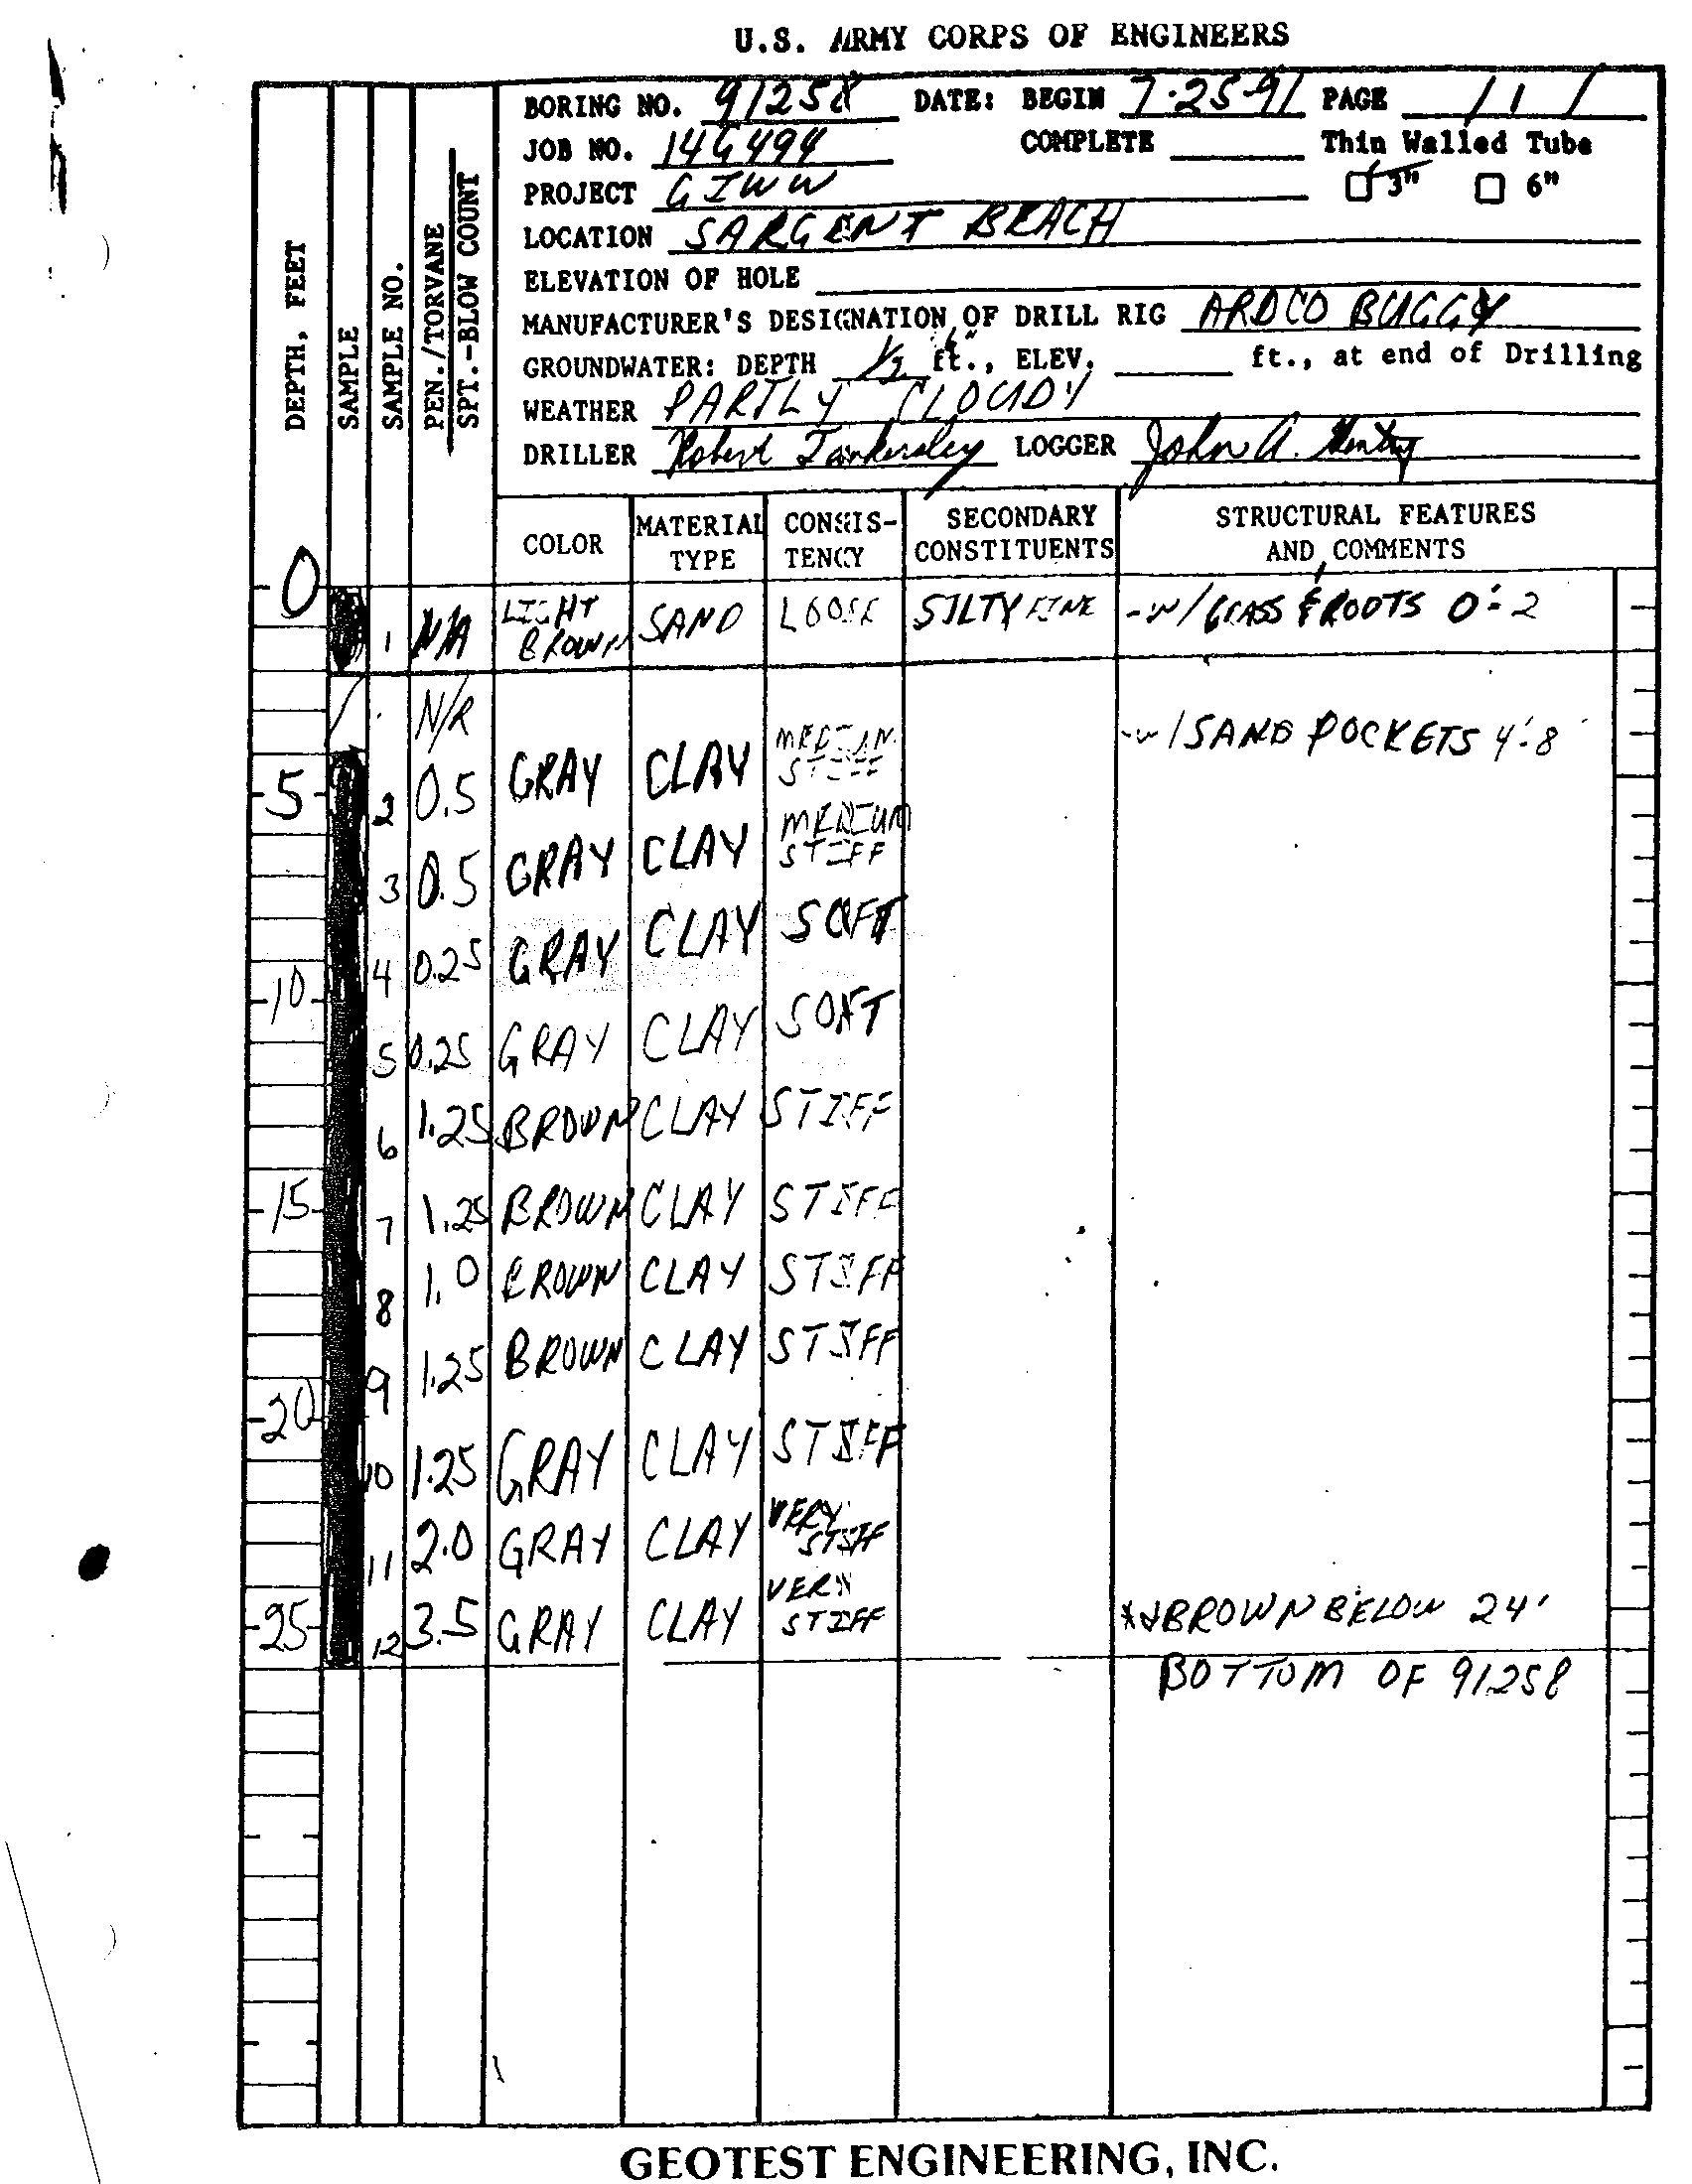 U.S. ARMY CORPS OF ENGINEERS
BORING NO. 91258 DATE: BEGIN 7-25-91 PAGE 1 / 1
JOB NO. 14G494 COMPLETE Thin Walled Tube
PROJECT GIWW 3" 6"
LOCATION SARGENT BEACH
ELEVATION OF HOLE
MANUFACTURER'S DESIGNATION OF DRILL RIG ARDCO BUGGY
GROUNDWATER: DEPTH 1/2 ft., ELEV. ft., at end of Drilling
6"
WEATHER PARTLY CLOUDY
DRILLER Robert Tankersley LOGGER John A.
DEPTH, FEET
SAMPLE
SAMPLE NO.
PEN./TORVANE
SPT.-BLOW COUNT
COLOR MATERIAL TYPE CONSIS-TENCY SECONDARY CONSTITUENTS STRUCTURAL FEATURES AND COMMENTS
0
1 N/A LIGHT BROWN SAND LOOSE SILTY FINE -W/ GRASS & ROOTS 0'-2
N/R
-W/SAND POCKETS 4'-8'
5 2 0.5 GRAY CLAY MEDIUM STIFF
3 0.5 GRAY CLAY MEDIUM STIFF
4 0.25 GRAY CLAY SOFT
10
5 0.25 GRAY CLAY SOFT
6 1.25 BROWN CLAY STIFF
15 7 1.25 BROWN CLAY STIFF
8 1.0 BROWN CLAY STIFF
9 1.25 BROWN CLAY STIFF
20
10 1.25 GRAY CLAY STIFF
11 2.0 GRAY CLAY VERY STIFF
25 12 3.5 GRAY CLAY VERY STIFF BROWN BELOW 24'
BOTTOM OF 91258
GEOTEST ENGINEERING, INC.